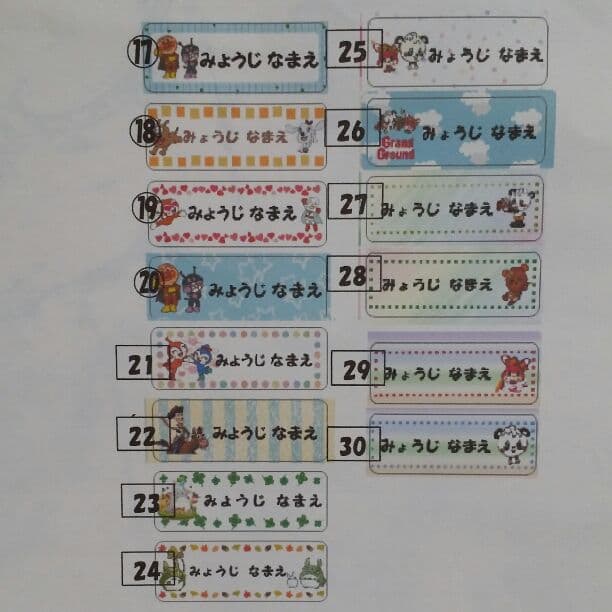 ⑰ みょうじ なまえ
⑱ みょうじ なまえ
⑲ みょうじ なまえ
⑳ みょうじ なまえ
21 みょうじ なまえ
22 みょうじ なまえ
23 みょうじ なまえ
24 みょうじ なまえ
25 みょうじ なまえ
26 みょうじ なまえ
Grand
Ground
27 みょうじ なまえ
28 みょうじ なまえ
29 みょうじ なまえ
30 みょうじ なまえ